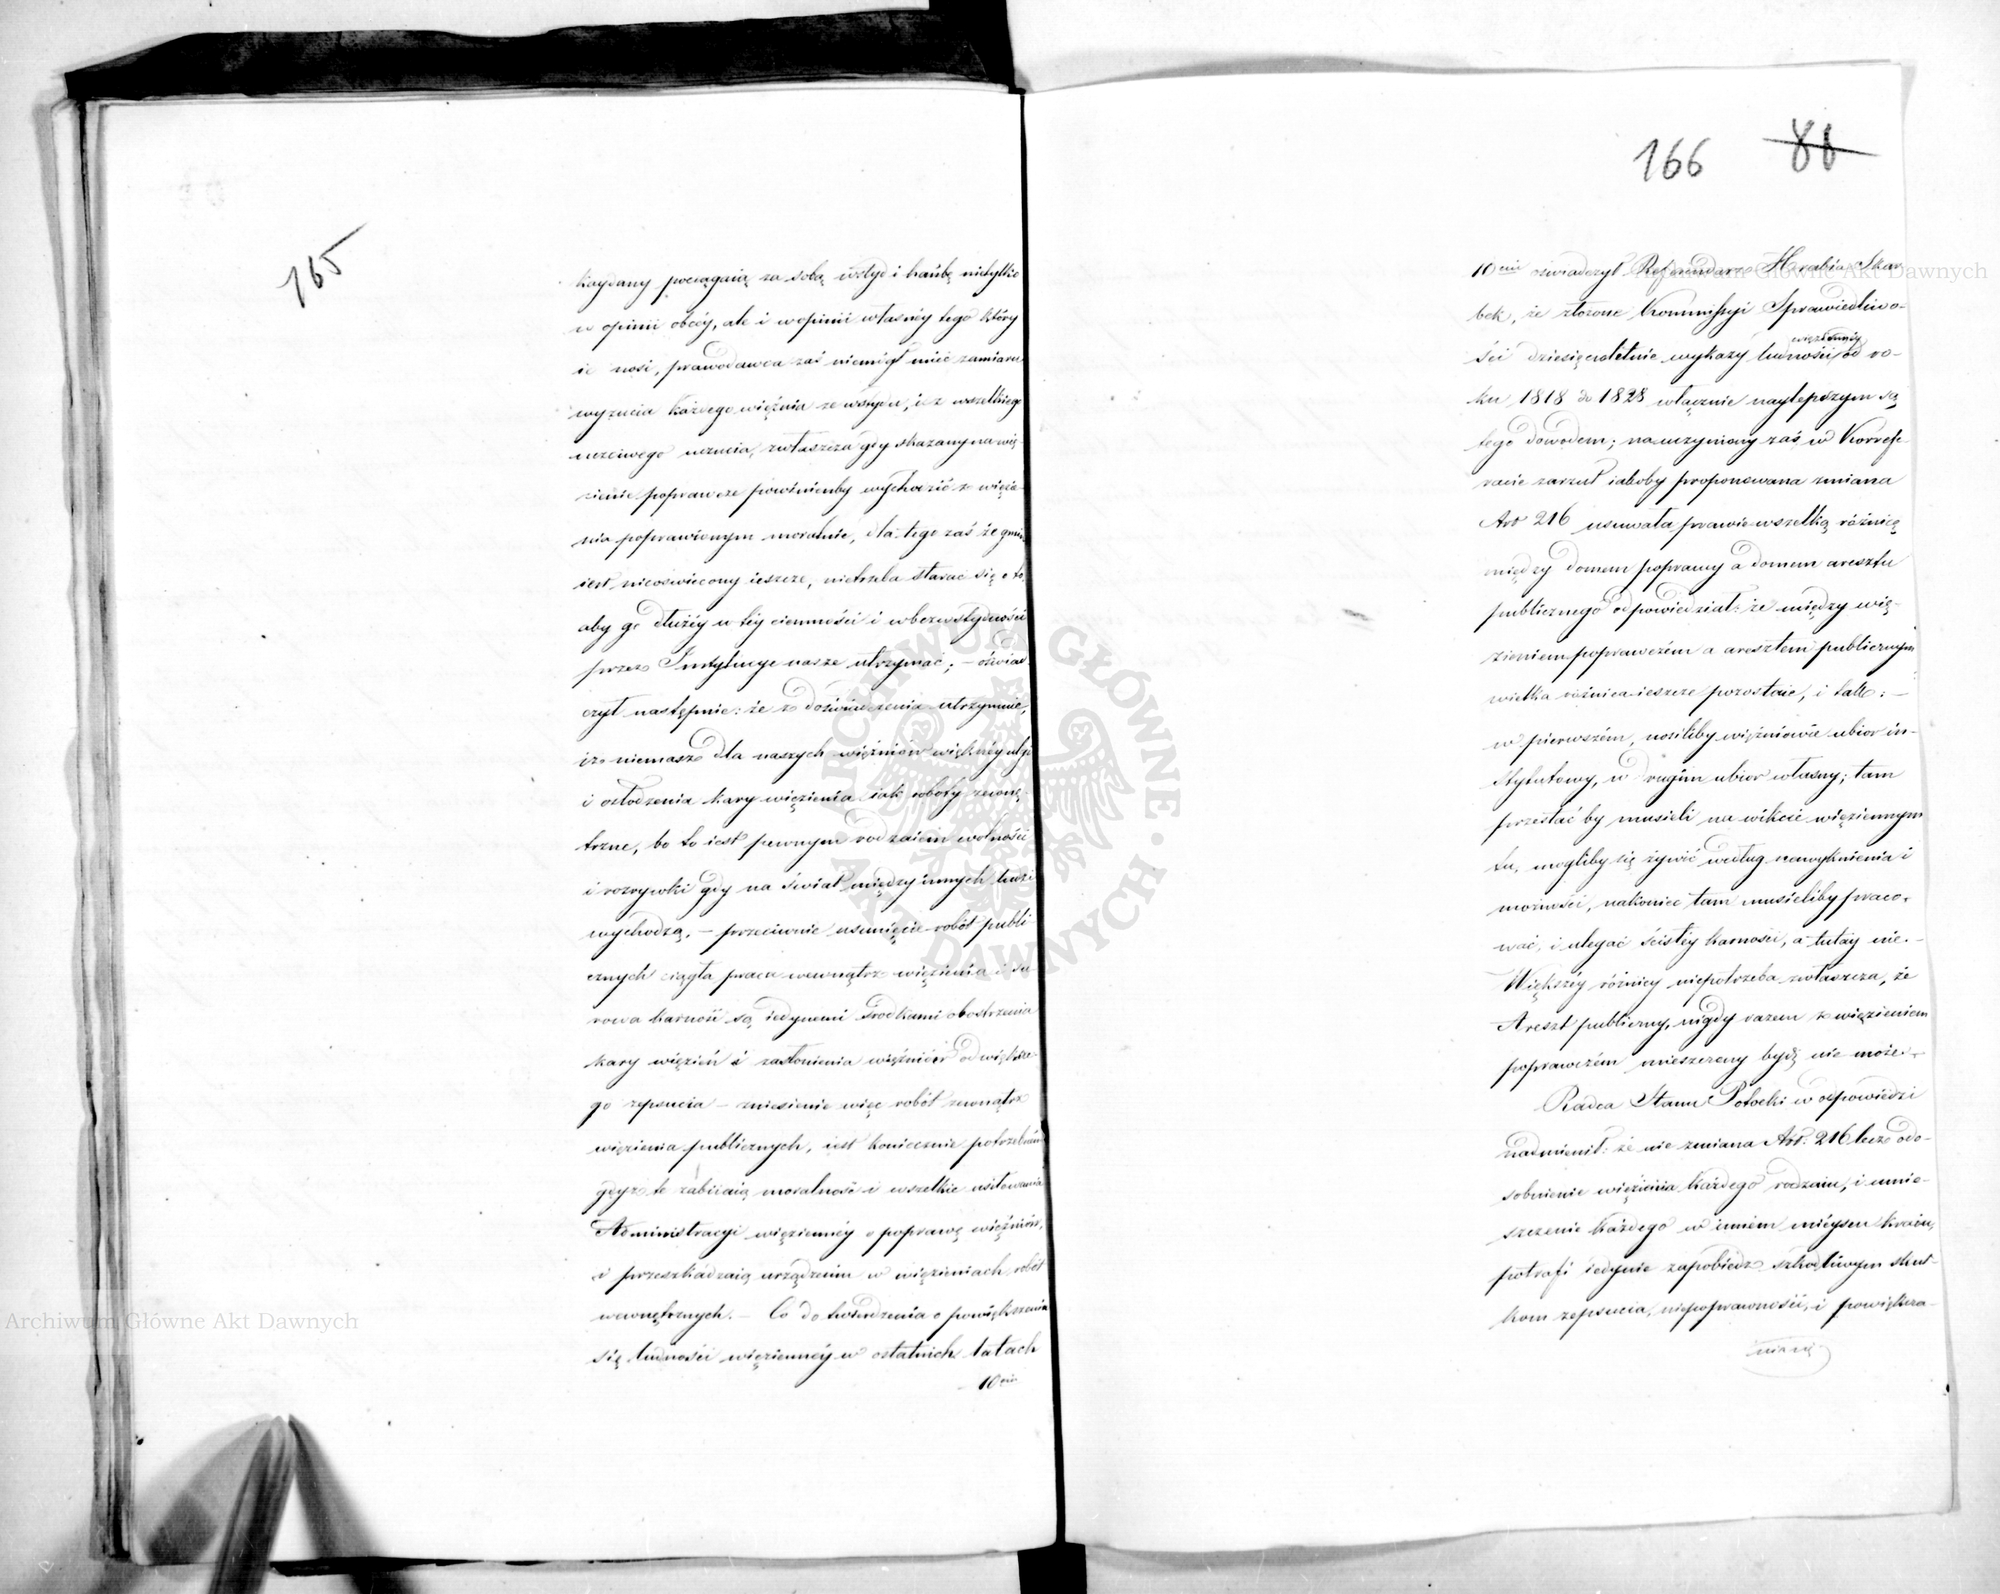 165
kaydany pociągaią za sobą wstyd i hańbę nietylko
w opinii obcéy, ale i w opinii własnéy tego który
ie nosi, prawodawca zaś niemógł mieć zamiaru
wyzucia każdego więźnia ze wstydu, i z wszelkiego
uczciwego uczucia, zwłaszcza gdy skazany na wię-
zienie poprawcze powinienby wychodzić z więzie-
nia poprawionym moralnie, dla tego zaś że gmin
iest nieoświecony ieszcze, nietrzeba starać się o to,
aby go dłużéy w téy ciemności i w bezwstydności
przez Instytucye nasze utrzymać; – oświad
czył następnie: że z doświadczenia utrzymuie,
iż niemasz dla naszych więźniów większéy ulgi
i osłodzenia kary więzienia iak roboty zewnę-
trzne, bo to iest pewnym rodzaiem wolności
i rozrywki gdy na świat między innych ludzi
wychodzą, – przeciwnie usunięcie robót publi
cznych ciągła praca wewnątrz więzienia i su-
rowa karność są iedynemi środkami obostrzenia
kary więzień i zasłonienia więźniów od większe-
go zepsucia – zniesienie więc robót zewnątrz
więzienia publicznych, iest koniecznie potrzebném
gdyż te zabiiaią moralność i wszelkie usiłowania
Administracyi więziennéy o poprawę więźniów,
i przeszkadzaią urządzeniu w więzieniach robót
wewnętrznych. – Co do twierdzenia o powiększeniu
się ludności więziennéy w ostatnich latach
10ciu
166 88
10ciu oświadczył Referendarz Hrabia Skar-
bek, że złożone Kommissyi Sprawiedliwo-
ści dziesięcioletnie wykazy ludności więziennéy od ro-
ku 1818 do 1828 włącznie naylepszym są
tego dowodem; na uczyniony zaś w Korrefe-
racie zarzut iakoby proponowana zmiana
Art 216 usuwała prawie wszelką różnicę
między domem poprawy a domem aresztu
publicznego odpowiedział: że między wię-
zieniem poprawczém a aresztem publicznym
wielka różnica ieszcze pozostaie, i tak: –
w pierwszém, nosiliby więźniowie ubior in-
stytutowy, w drugim ubior własny; tam
przestać by musieli na wikcie więziennym
tu, mogliby się żywić według nawyknienia i
możności, nakoniec tam musieliby praco-
wać, i ulegać ścisłéy karności, a tutay nie. –
Większéy różnicy niepotrzeba zwłaszcza, że
Areszt publiczny, nigdy razem z więzieniem
poprawczém mieszczony bydź nie może. –
Radca Stanu Potocki w odpowiedzi
nadmienił: że nie zmiana Art: 216 lecz odo-
sobnienie więzienia każdego rodzaiu, i umie-
szczenie każdego w inném mieyscu kraiu,
potrafi iedynie zapobiedz szkodliwym skut-
kom zepsucia, niepoprawności, i powiększa-
nia się
Archiwum Główne Akt Dawnych
Archiwum Główne Akt Dawnych
ARCHIWUM GŁÓWNE AKT DAWNYCH